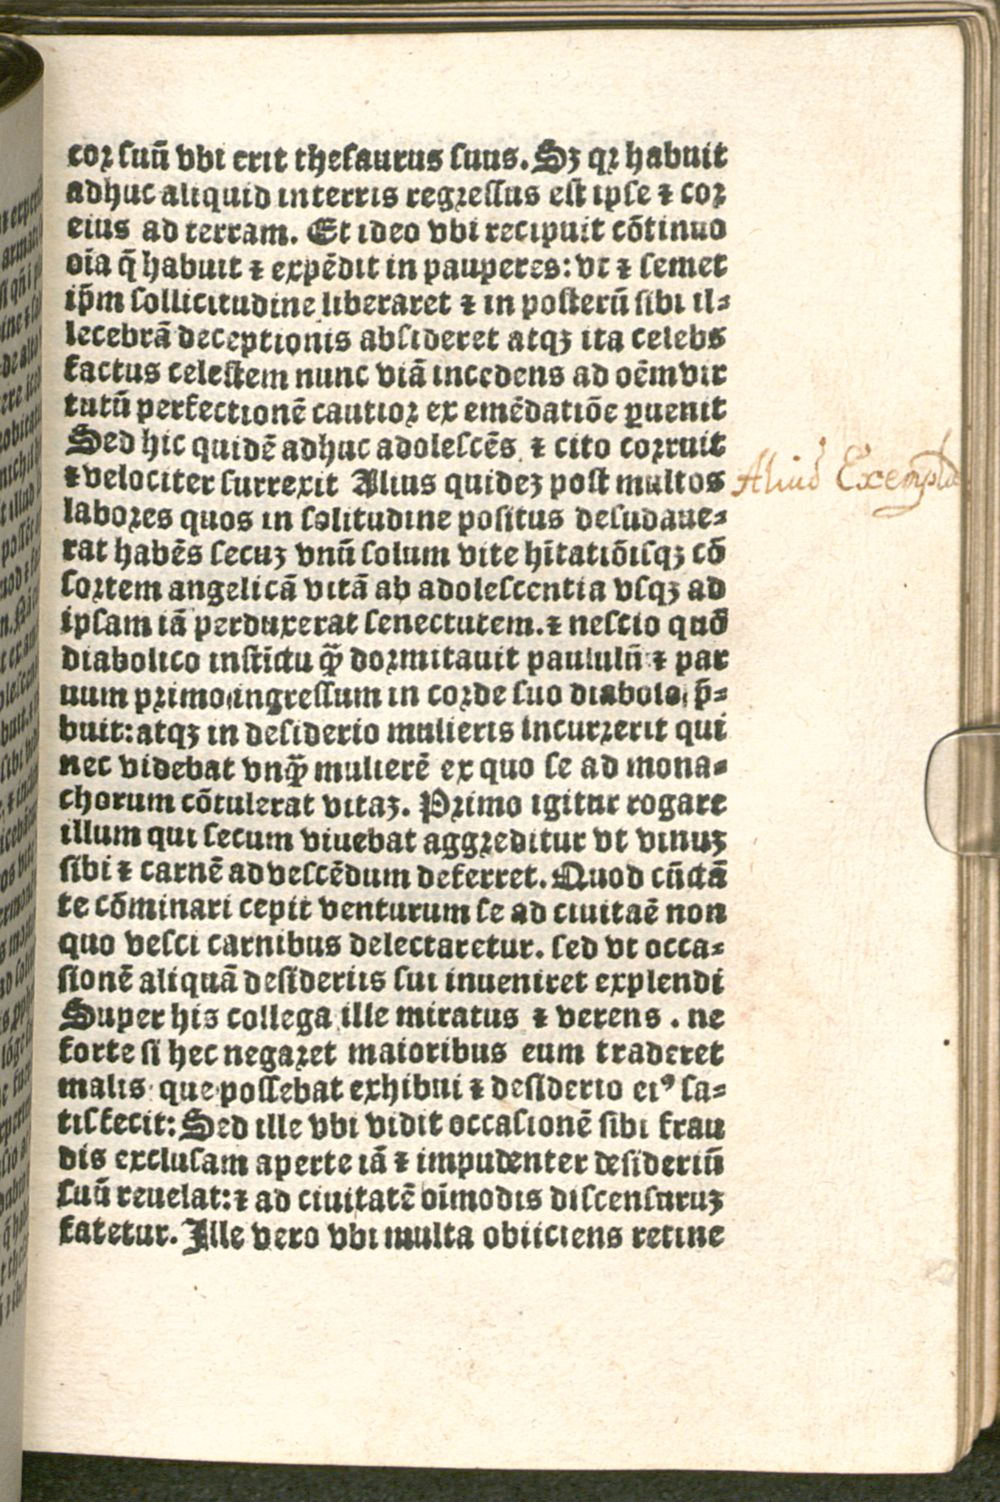 cor suū vbi erit thesaurus suus. Sʒ qꝛ habuit
adhuc aliquid in terris regressus est ipse ⁊ cor
eius ad terram. Et ideo vbi recipuit cōtinuo
oīa q̄ habuit ⁊ expēdit in pauperes: vt ⁊ semet
ip̄m sollicitudine liberaret ⁊ in posterū sibi il⸗
lecebrā deceptionis absideret atqꝫ ita celebs
factus celestem nunc viā incedens ad oēm vir
tutū perfectionē cautior ex emēdatiōe ꝑuenit
Sed hic quidē adhuc adolescēs ⁊ cito corruit
⁊ velociter surrexit Alius quideʒ post multos
Aliud Exempla
labores quos in solitudine positus desudaue⸗
rat habēs secuʒ vnū solum vite hītatiōisqꝫ cō
sortem angelicā vitā ab adolescentia vsqꝫ ad
ipsam iā perduxerat senectutem. ⁊ nescio quō
diabolico instīctu qꝙ̄ dormitauit paululū ⁊ par
uum primo ingressum in corde suo diabolo p̄⸗
buit: atqꝫ in desiderio mulieris incurrerit qui
nec videbat vnqꝙ̄ mulierē ex quo se ad mona⸗
chorum cōtulerat vitaʒ. Primo igitur rogare
illum qui secum viuebat aggreditur vt vinuʒ
sibi ⁊ carnē ad vescēdum deferret. Quod cūctā
te cōminari cepit venturum se ad ciuitaē non
quo vesci carnibus delectaretur. sed vt occa⸗
sionē aliquā desideriis sui inueniret explendi
Super his collega ille miratus ⁊ verens . ne
forte si hec negaret maioribus eum traderet
malis que possebat exhibui ⁊ desiderio eiꝰ sa⸗
tisfecit: Sed ille vbi vidit occasionē sibi frau
dis exclusam aperte iā ⁊ impudenter desideriū
suū reuelat: ⁊ ad ciuitatē oīmodis discensuruʒ
fatetur. Ille vero vbi multa obiiciens retine